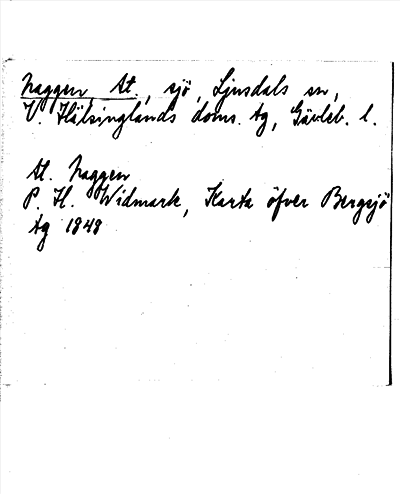 Naggen St., sjö, Ljusdals sn,
V. Hälsinglands doms. tg, Gävleb. l.
St. Naggen
P. H. Widmark, Karta öfver Bergsjö
tg 1848